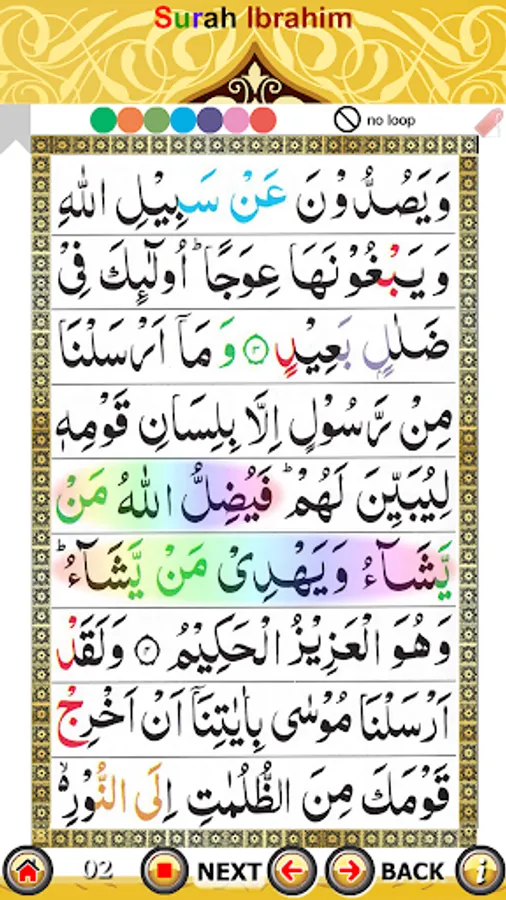 Surah Ibrahim
no loop
وَيَصُدُّوْنَ عَنْ سَبِيْلِ اللّٰهِ
وَيَبْغُوْنَهَا عِوَجًا ؕ اُولٰٓئِكَ فِىْ
ضَلٰلٍۢ بَعِيْدٍ ۝۳ وَمَاۤ اَرْسَلْنَا
مِنْ رَّسُوْلٍ اِلَّا بِلِسَانِ قَوْمِهٖ
لِيُبَيِّنَ لَهُمْ ؕ فَيُضِلُّ اللّٰهُ مَنْ
يَّشَآءُ وَيَهْدِىْ مَنْ يَّشَآءُ ؕ
وَهُوَ الْعَزِيْزُ الْحَكِيْمُ ۝۴ وَلَقَدْ
اَرْسَلْنَا مُوْسٰى بِاٰيٰتِنَاۤ اَنْ اَخْرِجْ
قَوْمَكَ مِنَ الظُّلُمٰتِ اِلَى النُّوْرِ ۙ
02 NEXT BACK i